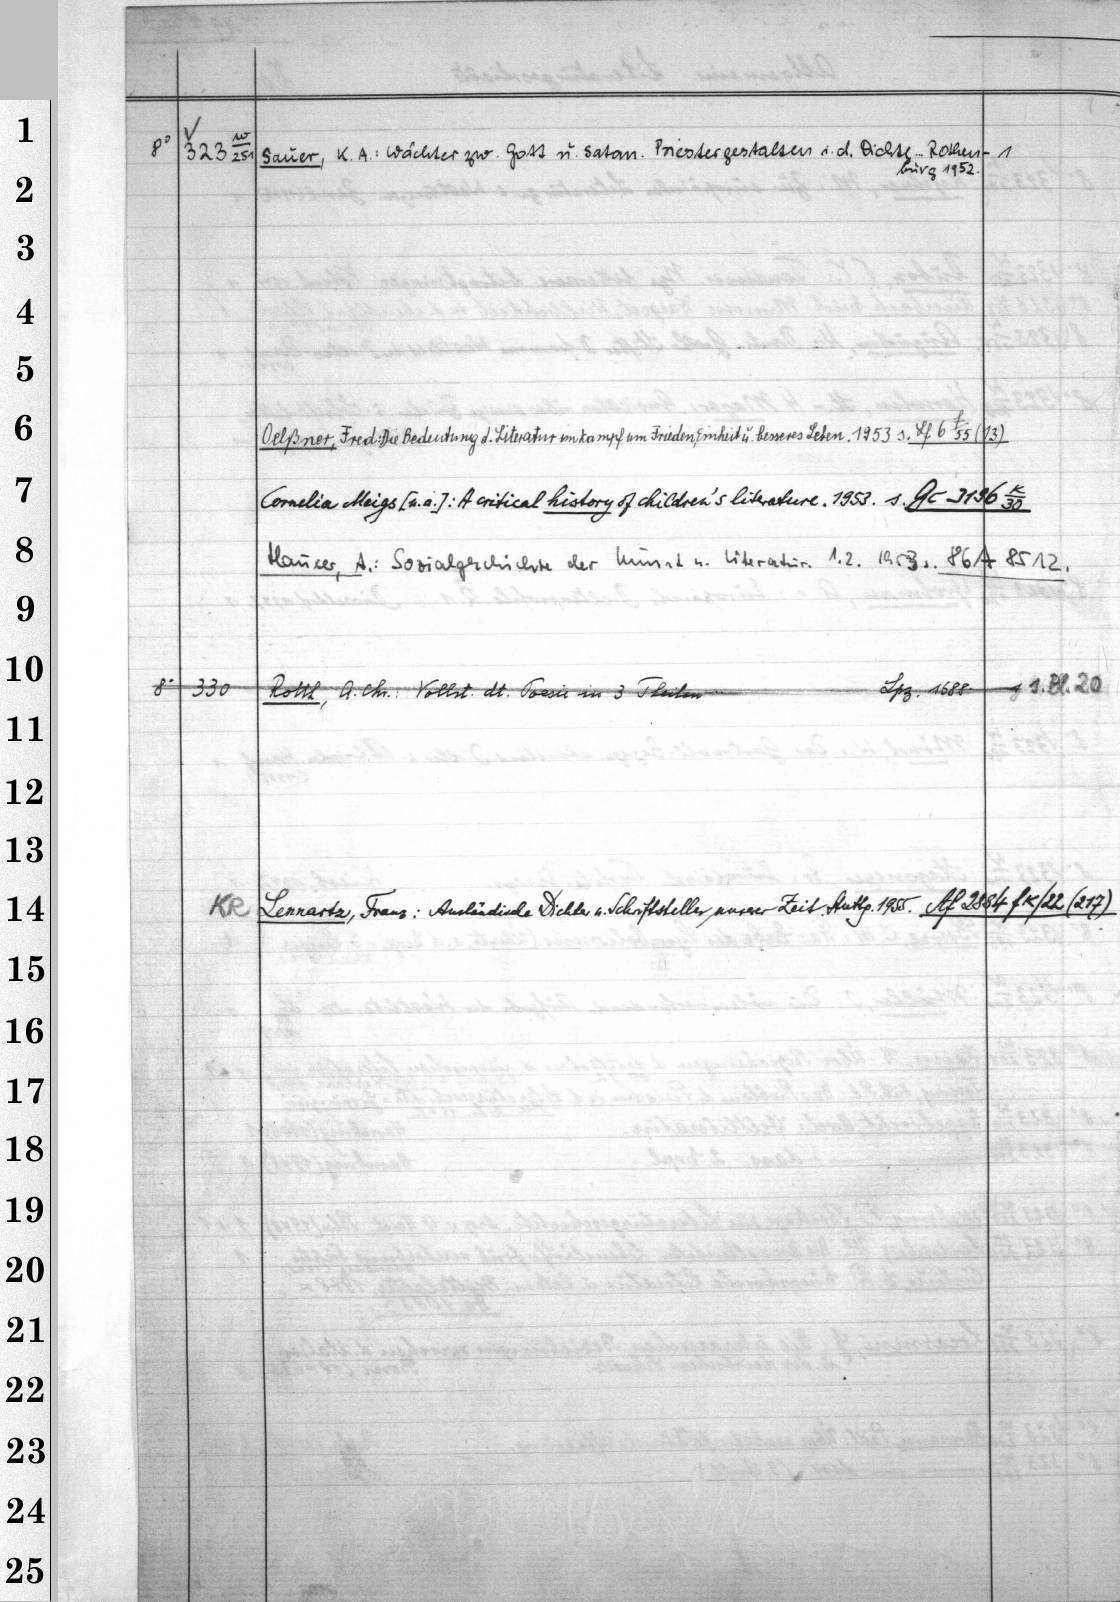 8° 323 w/251 Sauer, K. A.: Wächter zw. Gott u. Satan. Priestergestalten i. d. Dichtg. Rothen- 1
burg 1952.
Oelßner, Fred: Die Bedeutung d. Literatur im Kampf um Frieden, Einheit u. besseres Leben. 1953 s. 6 f/55 (13)
Cornelia Meigs [u.a.]: A critical history of children's literature. 1953. s. Gc 3196 K/30
Hauser, A.: Sozialgeschichte der Kunst u. Literatur. 1.2. 1953 s. 86 A 8512.
8° 330 Rotth, A. Chr.: Vollst. dt. Poesie in 3 Theilen Lpz. 1688 s. Bl. 20
KR Lennartz, Franz: Ausländische Dichter u. Schriftsteller unserer Zeit. Stuttg. 1955. Af 2884 f K/22 (217)
1
2
3
4
5
6
7
8
9
10
11
12
13
14
15
16
17
18
19
20
21
22
23
24
25